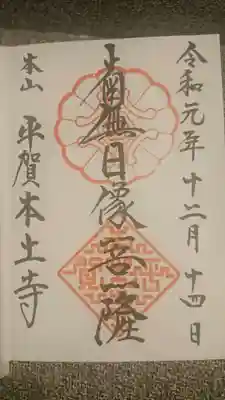 令和元年十二月十四日
南無日像菩薩
本山 平賀本土寺